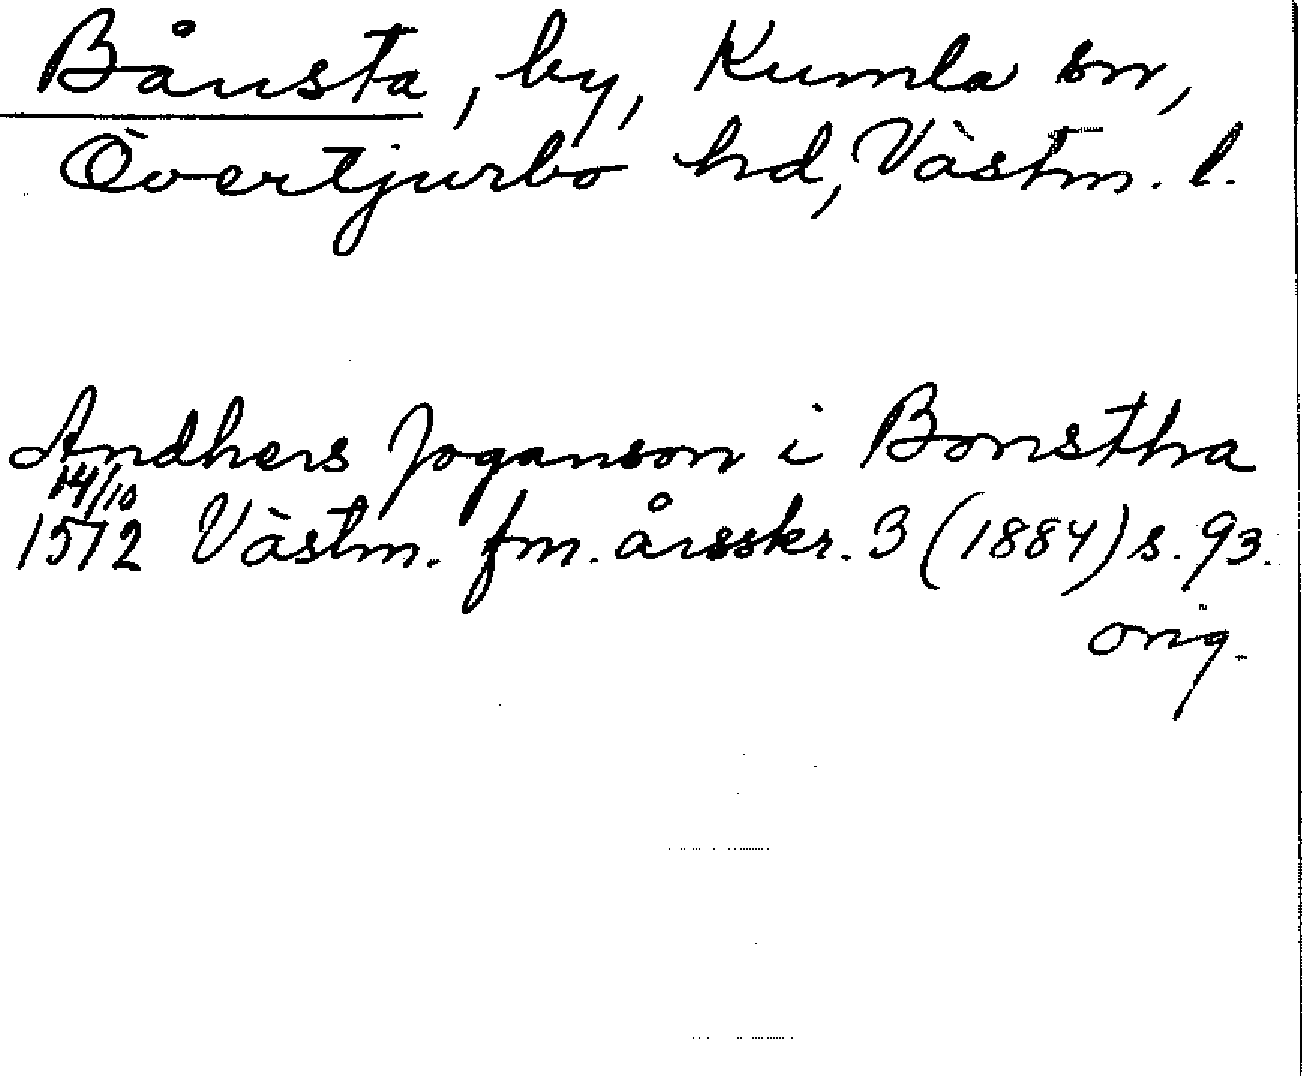 Bånsta, by, Kumla sn,
Övertjurbo hd, Västm. l.
Andhers Joganson i Bonstha
14/10
1572 Västm. fm. årsskr. 3 (1884) s. 93.
orig.